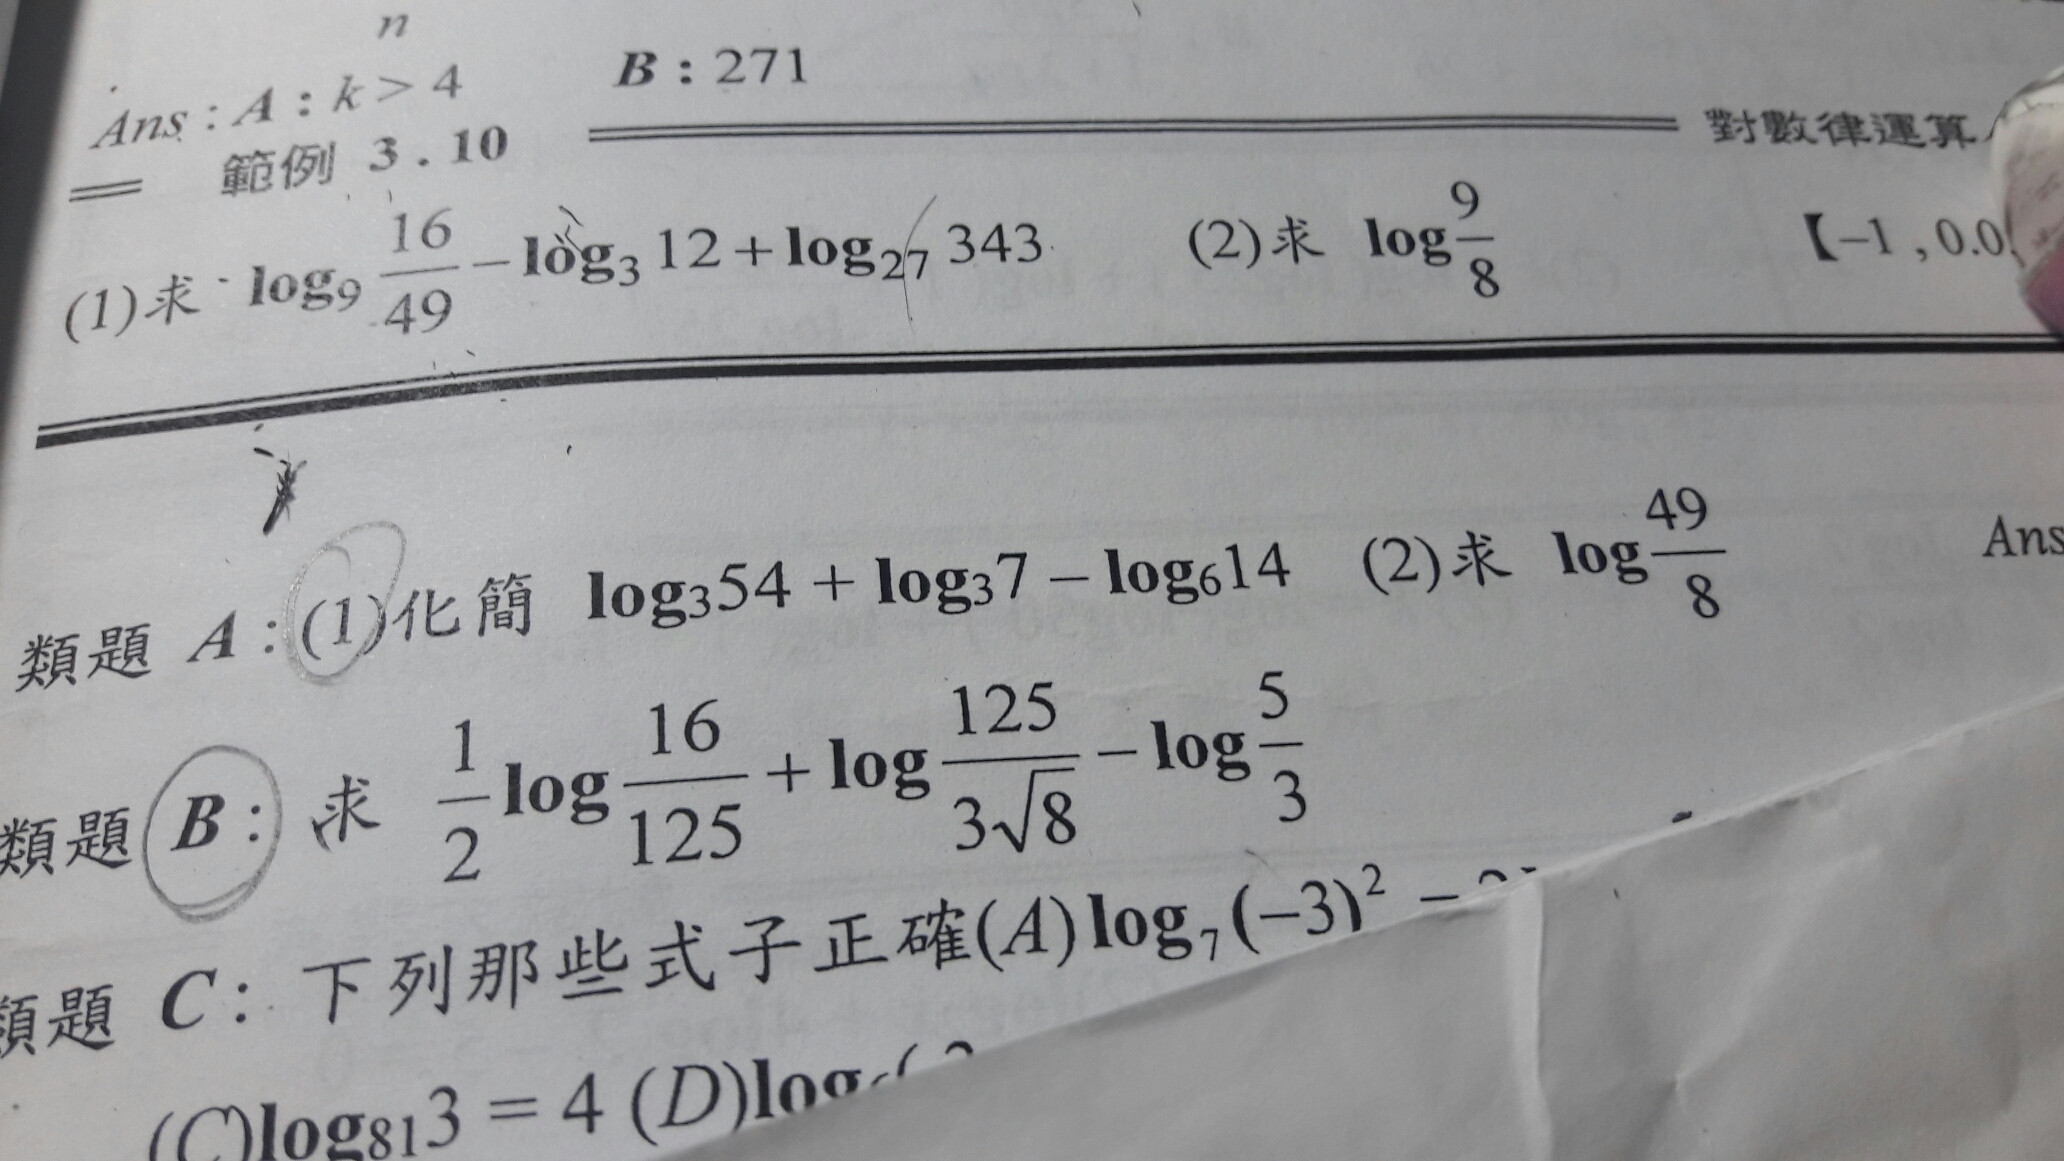 n
Ans : A : k > 4 B : 271
範例 3 . 10 對數律運算
(1)求 log₉ 16/49 − log₃ 12 + log₂₇ 343 (2)求 log 9/8 【−1 , 0.0
類題 A : (1)化簡 log₃54 + log₃7 − log₆14 (2)求 log 49/8 Ans
類題 B : 求 1/2 log 16/125 + log 125/(3√8) − log 5/3
類題 C : 下列那些式子正確(A) log₇(−3)² −
(C)log₈₁3 = 4 (D)log